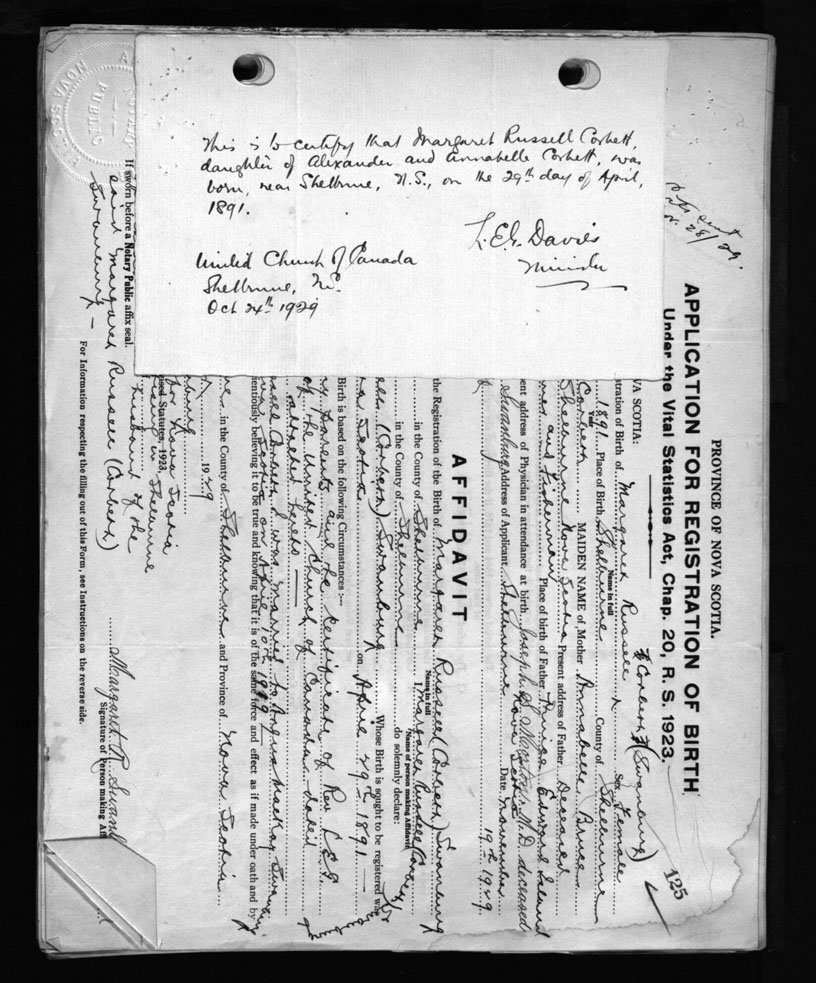 This is to certify that Margaret Russell Corbett,
daughter of Alexander and Annabelle Corbett, was
born, near Shelburne, N.S., on the 29th day of April,
1891.
L.E.G. Davies
Minister
United Church of Canada
Shelburne, N.S.
Oct 24th 1929
28/29.
PROVINCE OF NOVA SCOTIA.
APPLICATION FOR REGISTRATION OF BIRTH
Under the Vital Statistics Act, Chap. 20, R. S. 1923.
125
VA SCOTIA:
(Corbett) (Swanburg)
tration of Birth of Margaret Russell Sex Female
Name in full
1891 Place of Birth Shelburne County of Shelburne
Year
Corbett MAIDEN NAME of Mother Annabelle Bruce
Shelburne Nova Scotia Present address of Father Deceased
and Fisherman Place of birth of Father Prince Edward Island
ent address of Physician in attendance at birth Joseph M.D. deceased
Swanburg Address of Applicant Shelburne Nova Scotia Date November
19th 1929
AFFIDAVIT
the Registration of the Birth of Margaret Russell (Corbett) Swanburg
Name in full
in the County of Shelburne I Margaret Russell (Corbett)
(Name of person making Affidavit)
in the County of Shelburne do solemnly declare:
(Corbett) Swanburg Whose Birth is sought to be registered was
Scotia on April 29th 1891
Birth is based on the following Circumstances :—
parents and the certificate of Rev L.E.G.
of the United Church of Canada dated
attached hereto
Corbett I was married to Angus MacKay Swanburg
Scotia on 10th 19
ientiously believing it to be true and knowing that it is of the same force and effect as if made under oath and by
ised Statutes, 1923,
in the County of Shelburne and Province of Nova Scotia
1929
for Nova Scotia
in Shelburne
husband of the
said Margaret Russell (Corbett)
Swanburg
Margaret R. Swanb
Signature of Person making Aff
If sworn before a Notary Public affix seal.
For Information respecting the filling out of this Form, see Instructions on the reverse side.
NOTARY PUBLIC
NOVA SCOTIA